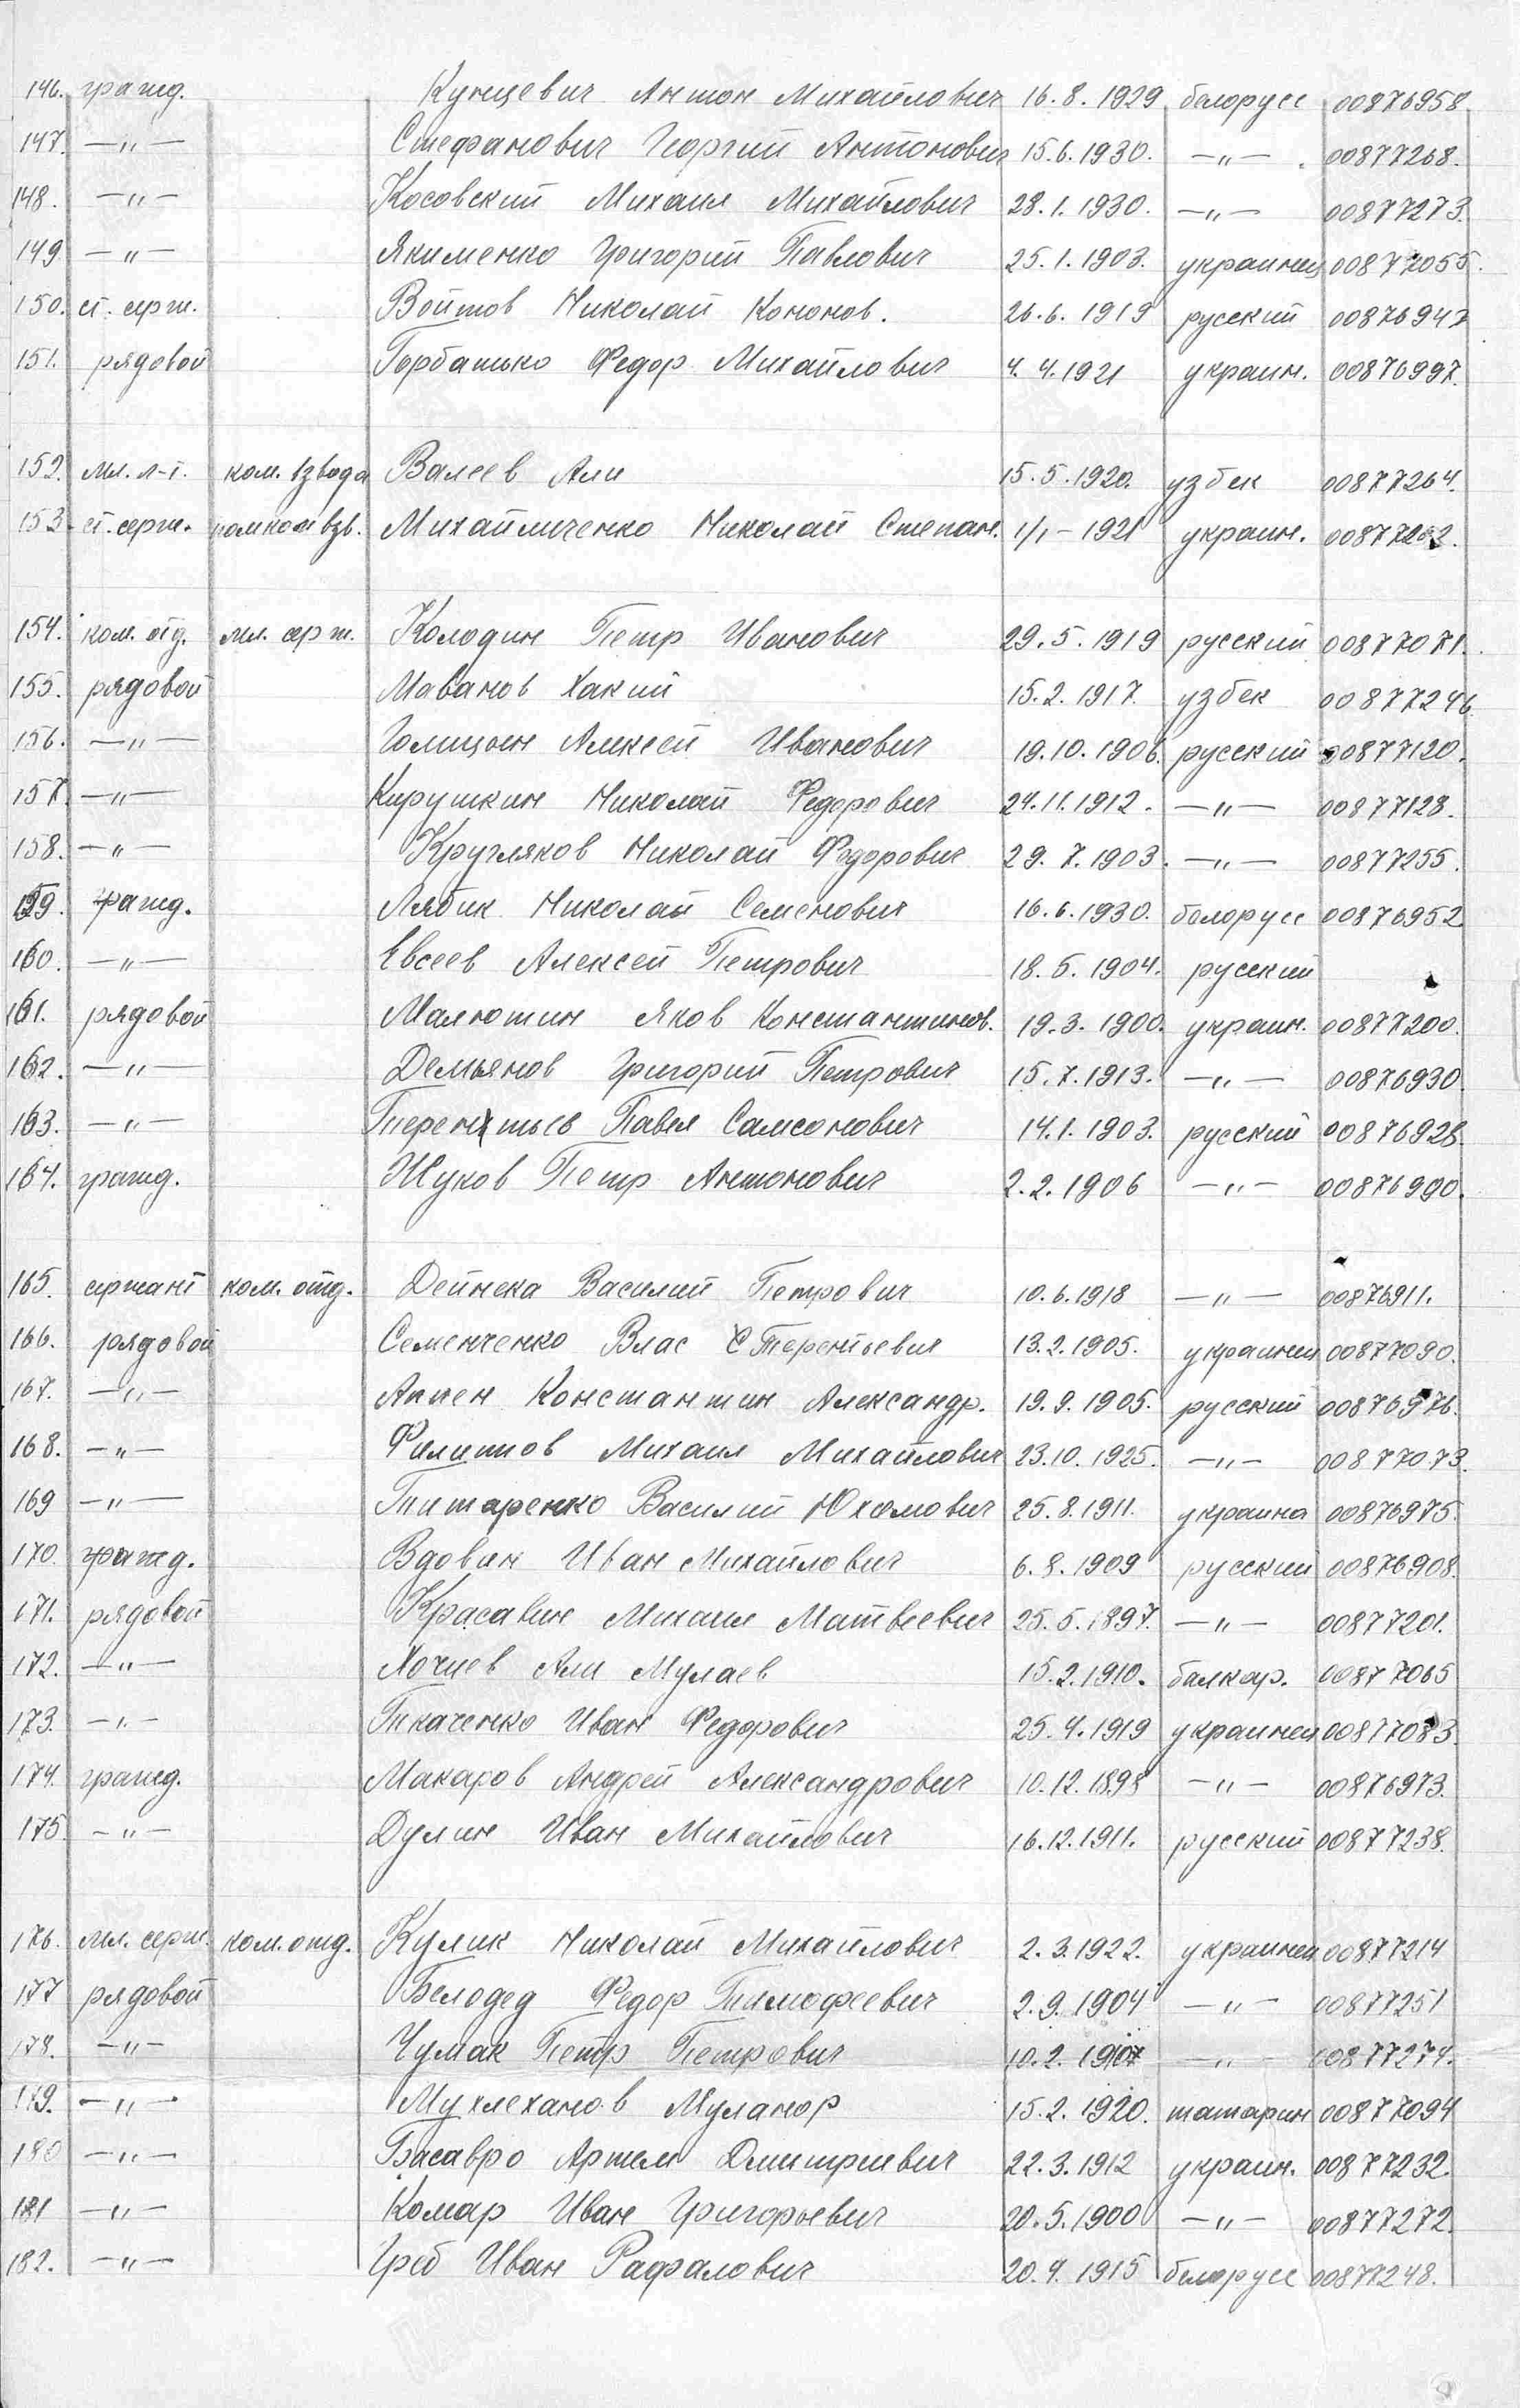 146. гражд. Кунцевич Антон Михайлович 16.8.1929 белорусс 00876958
147. —„— Стефанович Георгий Антонович 15.6.1930. —„— 00877268.
148. —„— Косовский Михаил Михайлович 28.1.1930. —„— 00877273.
149. —„— Якименко Григорий Павлович 25.1.1903. украинец 00877055.
150. ст. серж. Войтов Николай Кононов. 26.6.1919 русский 00876947
151. рядовой Горбатько Федор Михайлович 4.4.1921 украин. 00876997.
152. мл. л-т. ком. взвода Валеев Али 15.5.1920. узбек 00877264.
153. ст. серж. помком взв. Михайличенко Николай Степан. 1/1-1921 украин. 00877202.
154. ком. отд. мл. серж. Колодин Петр Иванович 29.5.1919 русский 00877071.
155. рядовой Маванов Хакий 15.2.1917. узбек 00877246
156. —„— Голицын Алексей Иванович 19.10.1906. русский 00877120.
157. —„— Кирушкин Николай Федорович 24.11.1912. —„— 00877128.
158. —„— Кругляков Николай Федорович 29.7.1903. —„— 00877255.
159. гражд. Лябик Николай Семенович 16.6.1930. белорусс 00876952
160. —„— Евсеев Алексей Петрович 18.5.1904. русский
161. рядовой Малютин Яков Константинов. 19.3.1900. украин. 00877200.
162. —„— Демьянов Григорий Петрович 15.7.1913. —„— 00876930.
163. —„— Терентьев Павел Самсонович 14.1.1903. русский 00876928.
164. гражд. Жуков Петр Антонович 2.2.1906 —„— 00876990.
165. сержант ком. отд. Дейнека Василий Петрович 10.6.1918 —„— 00876911.
166. рядовой Семенченко Влас Терентьевич 13.2.1905. украинец 00877090.
167. —„— Аппен Константин Александр. 19.9.1905. русский 00876976.
168. —„— Филиппов Михаил Михайлович 23.10.1925. —„— 00877073.
169 —„— Титаренко Василий Юхимович 25.8.1911. украина 00876975.
170. гражд. Вдовин Иван Михайлович 6.8.1909 русский 00876908.
171. рядовой Красавин Михаил Матвеевич 25.5.1897. —„— 00877201.
172. —„— Хочиев Али Мулаев 15.2.1910. балкар. 00877065
173. —„— Ткаченко Иван Федорович 25.4.1919 украинец 00877083.
174. гражд. Макаров Андрей Александрович 10.12.1898 —„— 00876973.
175. —„— Дулин Иван Михайлович 16.12.1911. русский 00877238.
176. мл. серж. ком. отд. Кулик Николай Михайлович 2.3.1922. украинец 00877214
177 рядовой Белодед Федор Тимофеевич 2.9.1904 —„— 00877251
178. —„— Чумак Петр Петрович 10.2.1907 —„— 00877274.
179. —„— Мухлеханов Муланор 15.2.1920. татарин 00877094
180 —„— Басавро Артем Дмитриевич 22.3.1912 украин. 00877232.
181 —„— Комар Иван Григорьевич 20.5.1900 —„— 00877272.
182. —„— Греб Иван Рафалович 20.9.1915 белорусс 00877248.